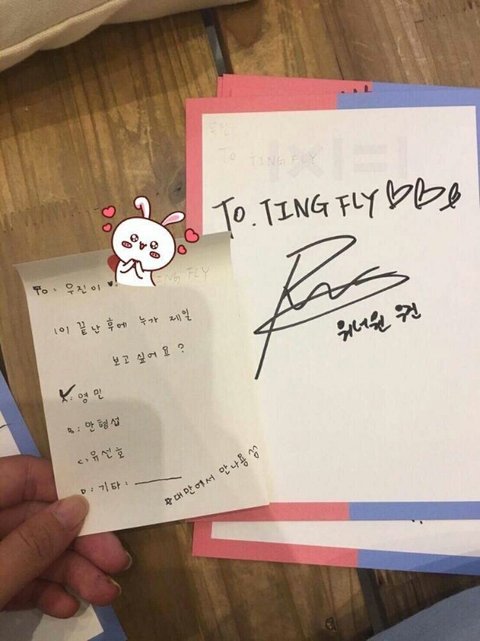 To: 우진이 ♥
101 끝난후에 누가 제일
보고싶어요?
A: 영민
B: 안형섭
C: 유선호
D: 기타: ______
☆대만에서 만나용
TO TING FLY
To. TING FLY♡♡
워너원 우진